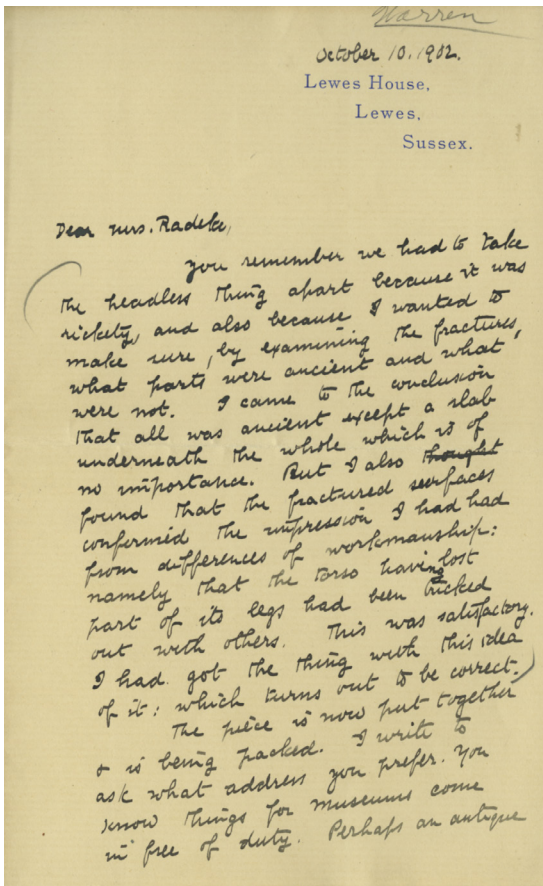 Warren
October 10. 1902.
Lewes House,
Lewes,
Sussex.
Dear Mrs. Radeke,
You remember we had to take
the headless thing apart because it was
rickety, and also because I wanted to
make sure, by examining the fractures,
what parts were ancient and what
were not. I came to the conclusion
that all was ancient except a slab
underneath the whole which is of
no importance. But I also thought
found that the fractured surfaces
confirmed the impression I had had
from differences of workmanship:
namely that the torso having lost
part of its legs had been tricked
out with others. This was satisfactory.
I had got the thing with this idea
of it: which turns out to be correct.)
The piece is now put together
& is being packed. I write to
ask what address you prefer. You
know things for museums come
in free of duty. Perhaps an antique